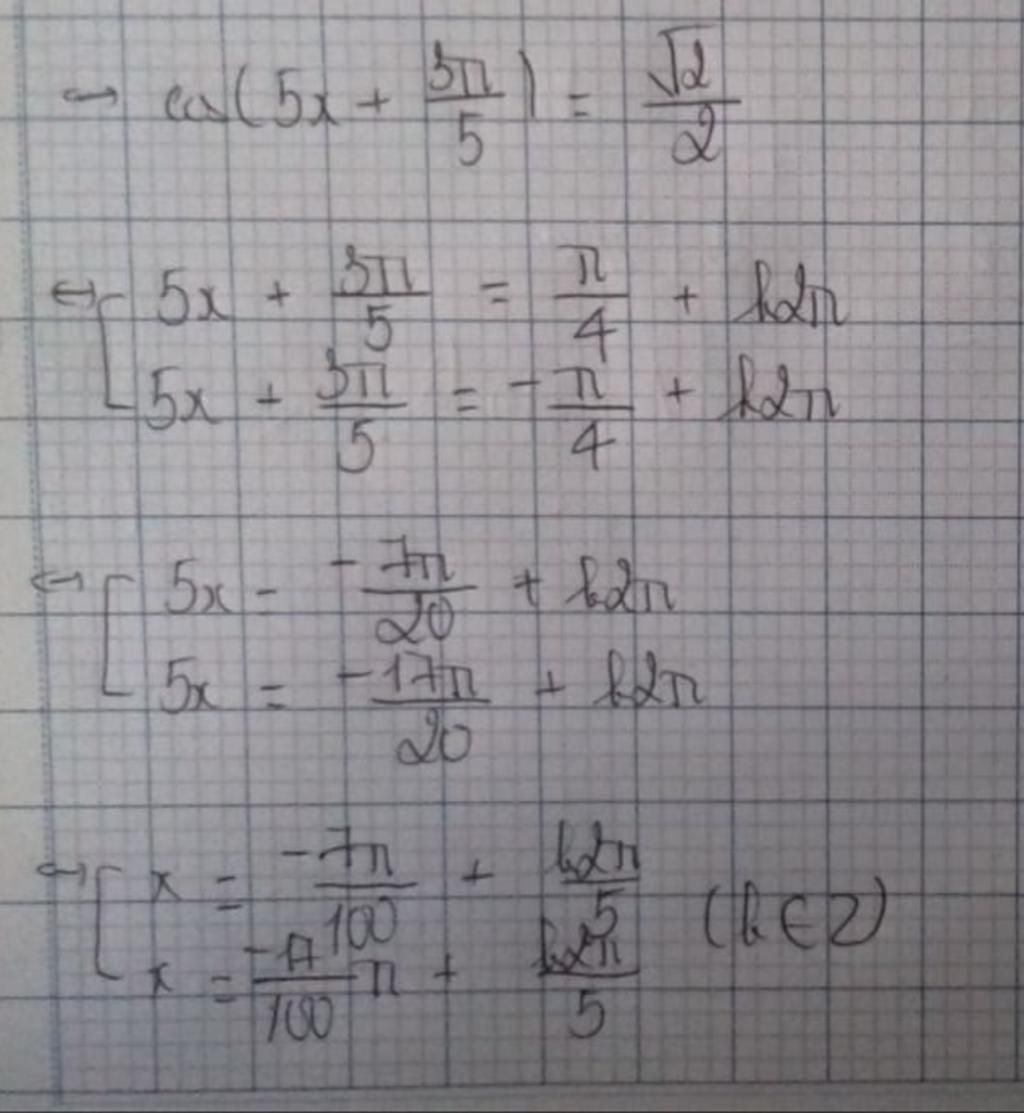 ↔ cos(5x + 3π/5) = √2/2
↔ [ 5x + 3π/5 = π/4 + k2π
5x + 3π/5 = -π/4 + k2π
↔ [ 5x = -7π/20 + k2π
5x = -17π/20 + k2π
↔ [ x = -7π/100 + k2π/5 (k ∈ Z)
x = -17/100 π + k2π/5